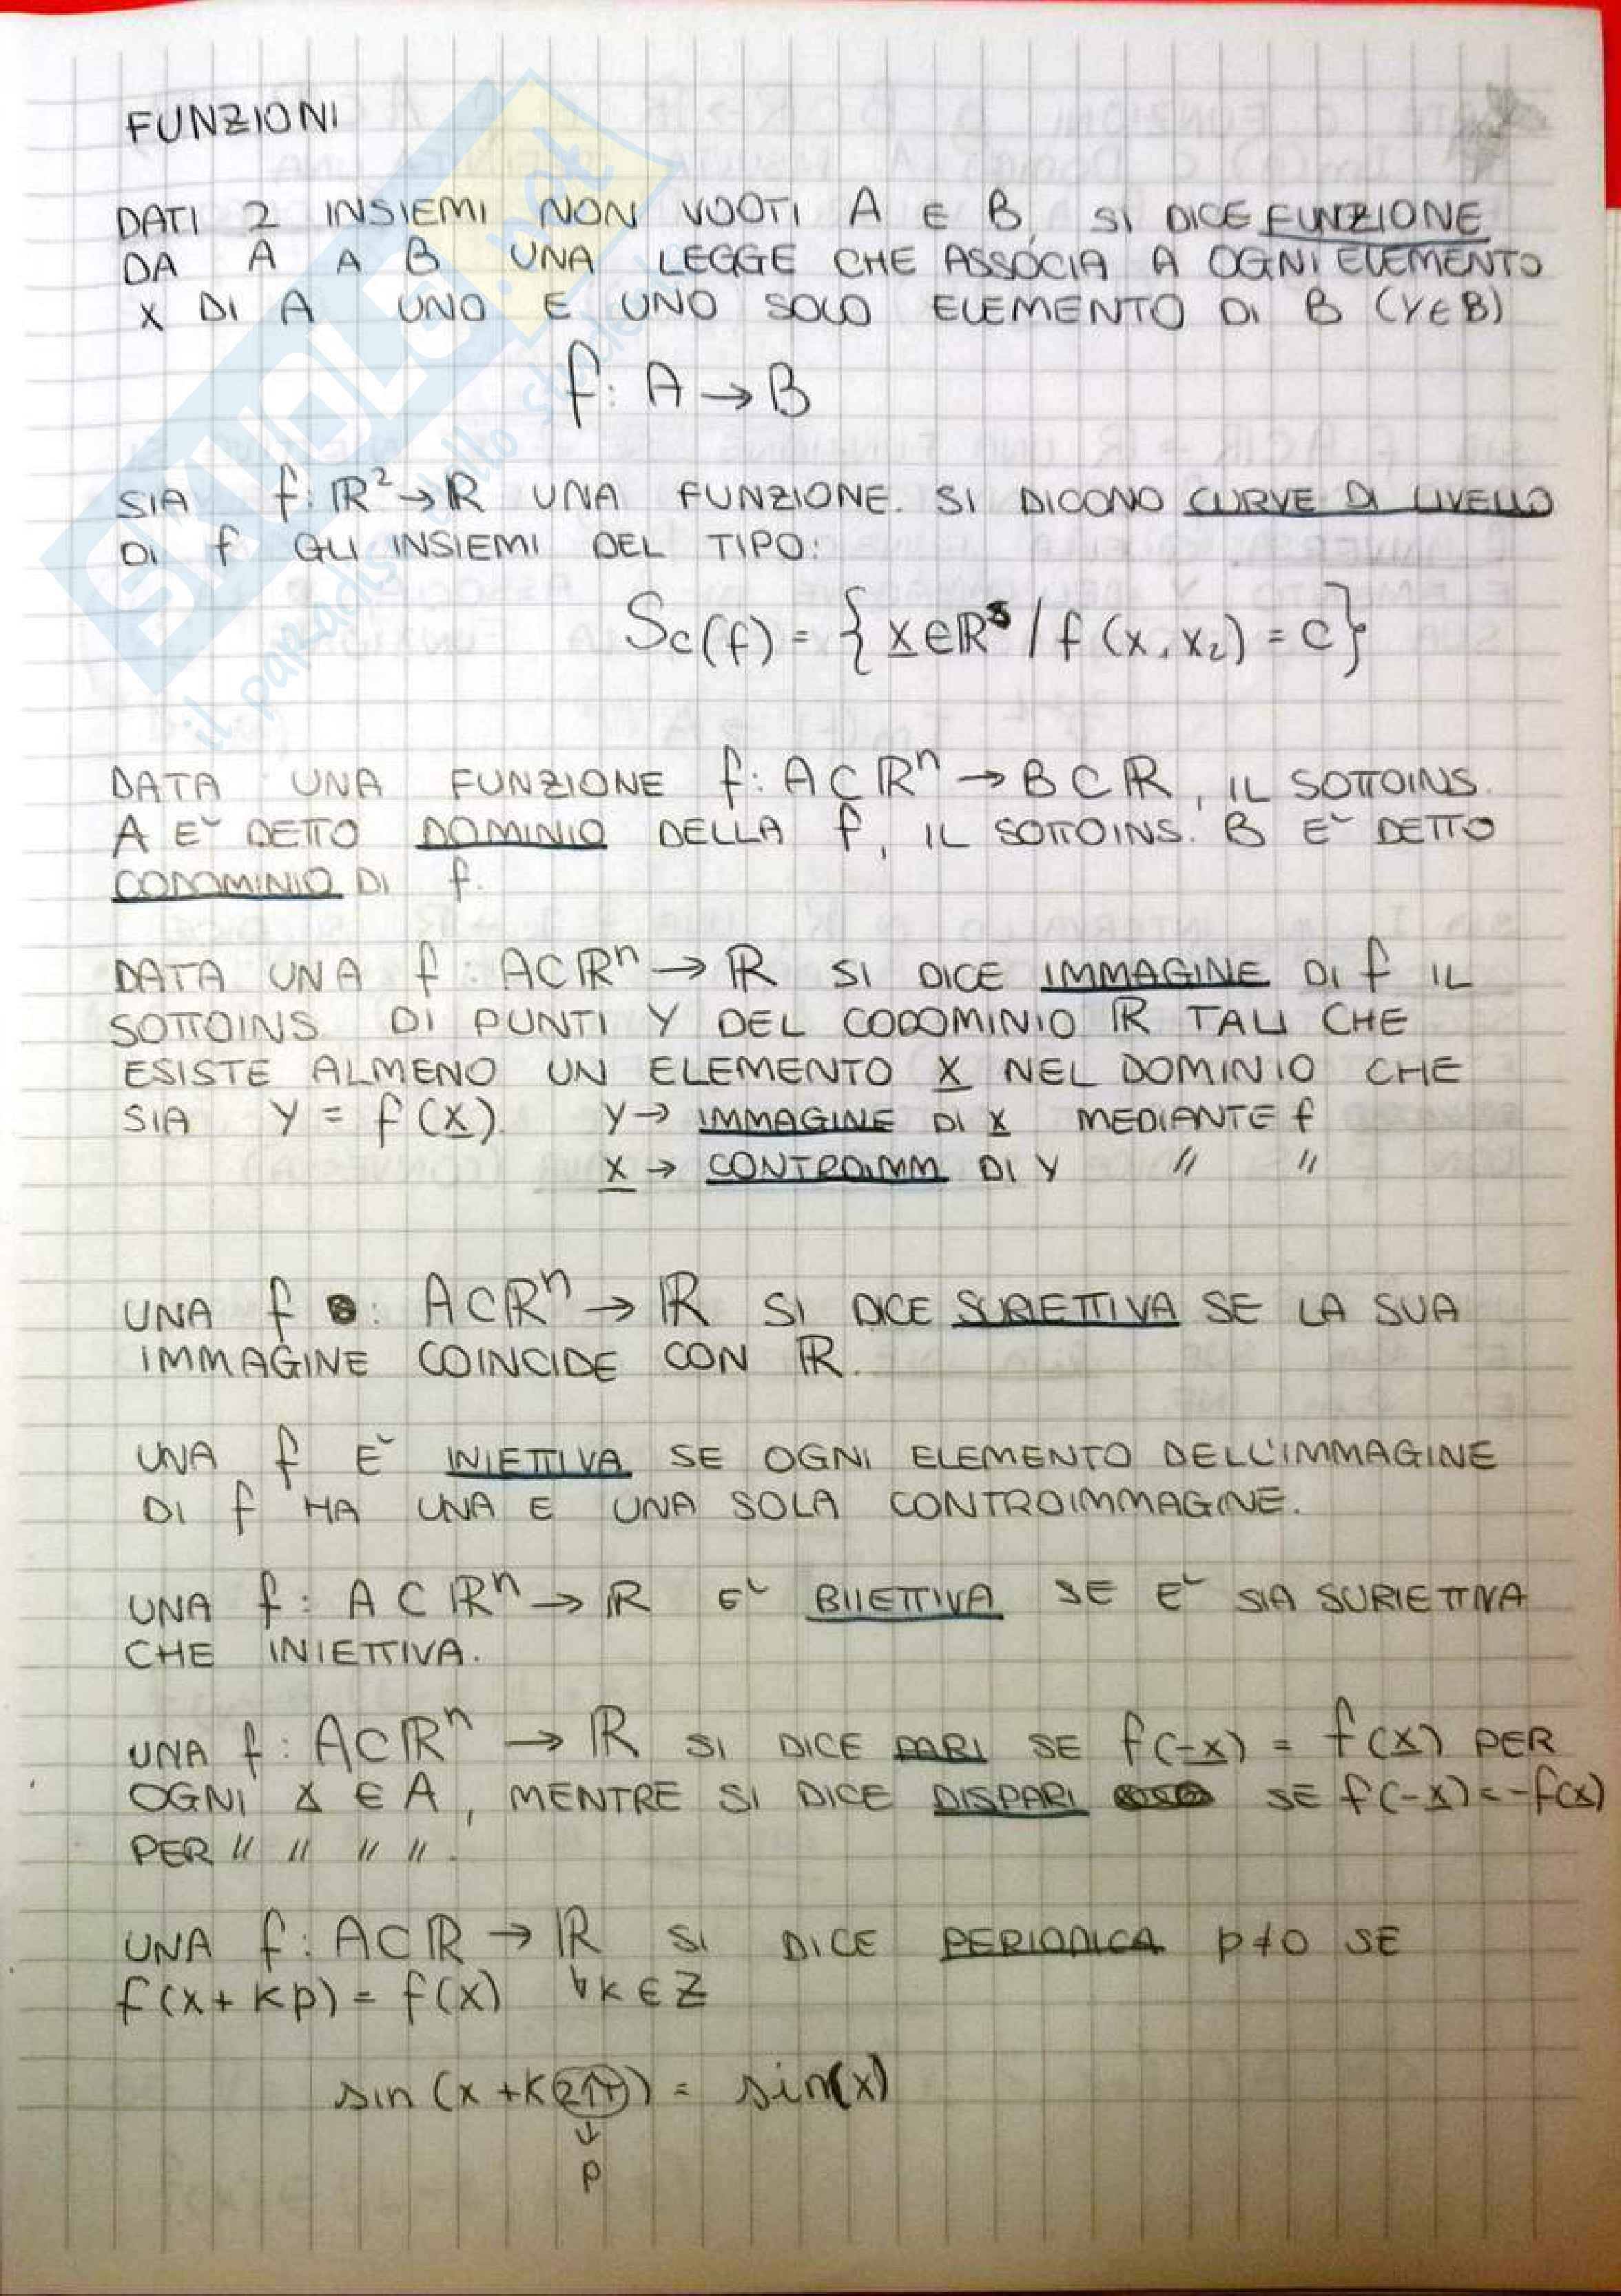 FUNZIONI
DATI 2 INSIEMI NON VUOTI A E B, SI DICE FUNZIONE
DA A A B UNA LEGGE CHE ASSOCIA A OGNI ELEMENTO
X DI A UNO E UNO SOLO ELEMENTO DI B (Y∈B)
f: A → B
SIA f: ℝ² → ℝ UNA FUNZIONE. SI DICONO CURVE DI LIVELLO
DI f GLI INSIEMI DEL TIPO:
Sc(f) = { x∈ℝ³ / f (x, x₂) = c}
DATA UNA FUNZIONE f: A⊂ℝⁿ → B⊂ℝ, IL SOTTOINS.
A E` DETTO DOMINIO DELLA f, IL SOTTOINS. B E` DETTO
CODOMINIO DI f.
DATA UNA f: A⊂ℝⁿ → ℝ SI DICE IMMAGINE DI f IL
SOTTOINS. DI PUNTI Y DEL CODOMINIO ℝ TALI CHE
ESISTE ALMENO UN ELEMENTO X NEL DOMINIO CHE
SIA Y = f(x). Y → IMMAGINE DI X MEDIANTE f
X → CONTROIMM DI Y // //
UNA f : A⊂ℝⁿ → ℝ SI DICE SURIETTIVA SE LA SUA
IMMAGINE COINCIDE CON ℝ.
UNA f E` INIETTIVA SE OGNI ELEMENTO DELL'IMMAGINE
DI f HA UNA E UNA SOLA CONTROIMMAGINE.
UNA f: A⊂ℝⁿ → ℝ E` BIIETTIVA SE E` SIA SURIETTIVA
CHE INIETTIVA.
UNA f: A⊂ℝⁿ → ℝ SI DICE PARI SE f(-x) = f(x) PER
OGNI X ∈ A, MENTRE SI DICE DISPARI SE f(-x) = -f(x)
PER // // // //.
UNA f: A⊂ℝ → ℝ SI DICE PERIODICA p≠0 SE
f(x+kp) = f(x) ∀k∈Z
sin (x+k2π) = sin(x)
↓
p
SKUOLA.net
il paradiso dello studente